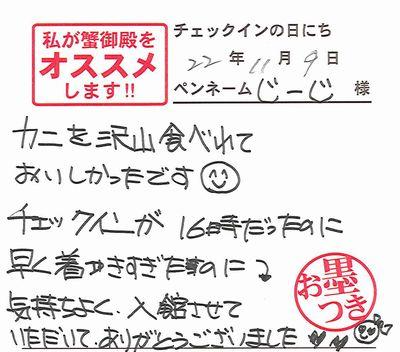 私が蟹御殿を
オススメ
します!!
チェックインの日にち
22年11月9日
ペンネーム じーじ 様
カニを沢山食べれて
おいしかったです
チェックインが 16時だったのに
早く着きすぎたのに
気持ちよく、入館させて
いただいて、ありがとうございました
お墨つき